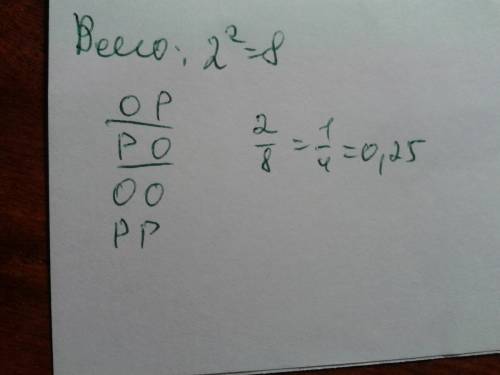 Всего: 2² = 8
ОР
РО
ОО
РР
2/8 = 1/4 = 0,25